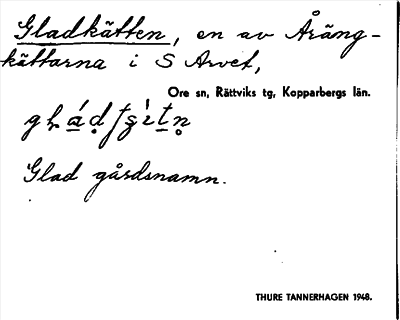 Gladkätten, en av Åräng-
kättarna i S Arvet,
Ore sn, Rättviks tg, Kopparbergs län.
Glad gårdsnamn.
THURE TANNERHAGEN 1948.